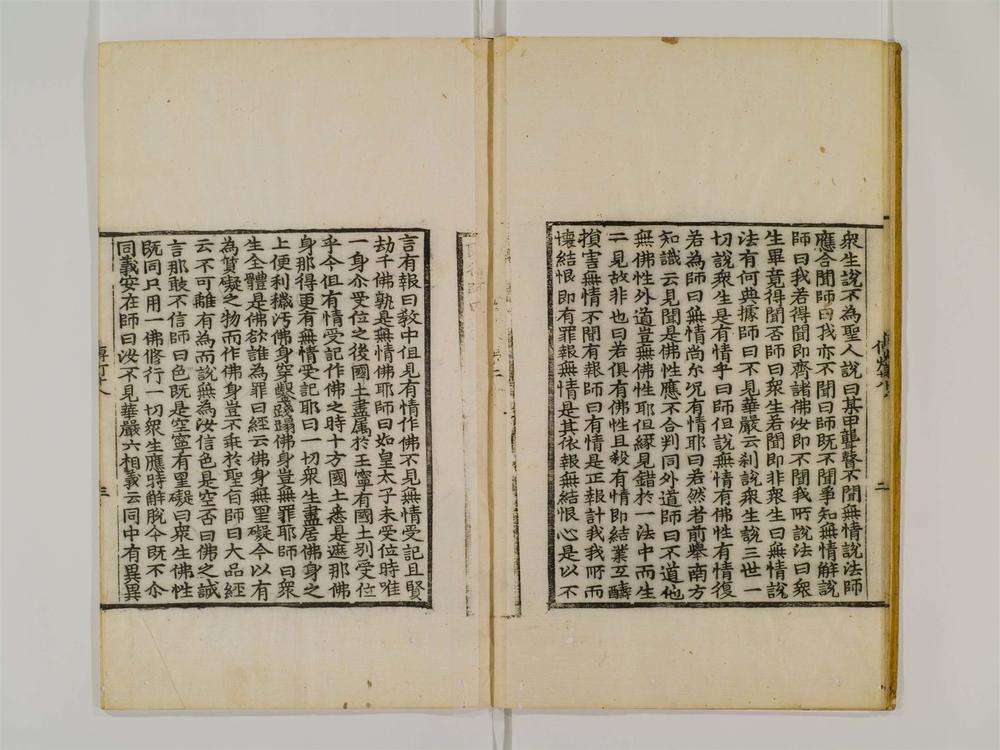 衆生說不為聖人說曰某甲聾瞽不聞無情說法師
應合聞師曰我亦不聞曰師旣不聞爭知無情解說
師曰我若得聞即齊諸佛汝即不聞我所說法曰衆
生畢竟得聞否師曰衆生若聞即非衆生曰無情說
法有何典據師曰不見華嚴云刹說衆生說三世一
切說衆生是有情乎曰師但說無情有佛性有情復
若為師曰無情尚尓况有情耶曰若然者前舉南方
知識云見聞是佛性應不合判同外道師曰不道他
無佛性外道豈無佛性耶但緣見錯於一法中而生
二見故非也曰若俱有佛性且殺有情即結業互醻
損害無情不聞有報師曰有情是正報計我我所而
懷結恨即有罪報無情是其依報無結恨心是以不
二
言有報曰敎中但見有情作佛不見無情受記且賢
劫千佛孰是無情佛耶師曰如皇太子未受位時唯
一身尒受位之後國土盡屬於王寧有國土別受位
乎今但有情受記作佛之時十方國土悉是遮那佛
身那得更有無情受記耶曰一切衆生盡居佛身之
上便利穢汚佛身穿鑿踐蹋佛身豈無罪耶師曰衆
生全體是佛欲誰為罪曰經云佛身無罣礙今以有
為質礙之物而作佛身豈不乖於聖旨師曰大品經
云不可離有為而說無為汝信色是空否曰佛之誠
言那敢不信師曰色旣是空寧有罣礙曰衆生佛性
旣同只用一佛修行一切衆生應時解脫今旣不尒
同義安在師曰汝不見華嚴六相義云同中有異異
三